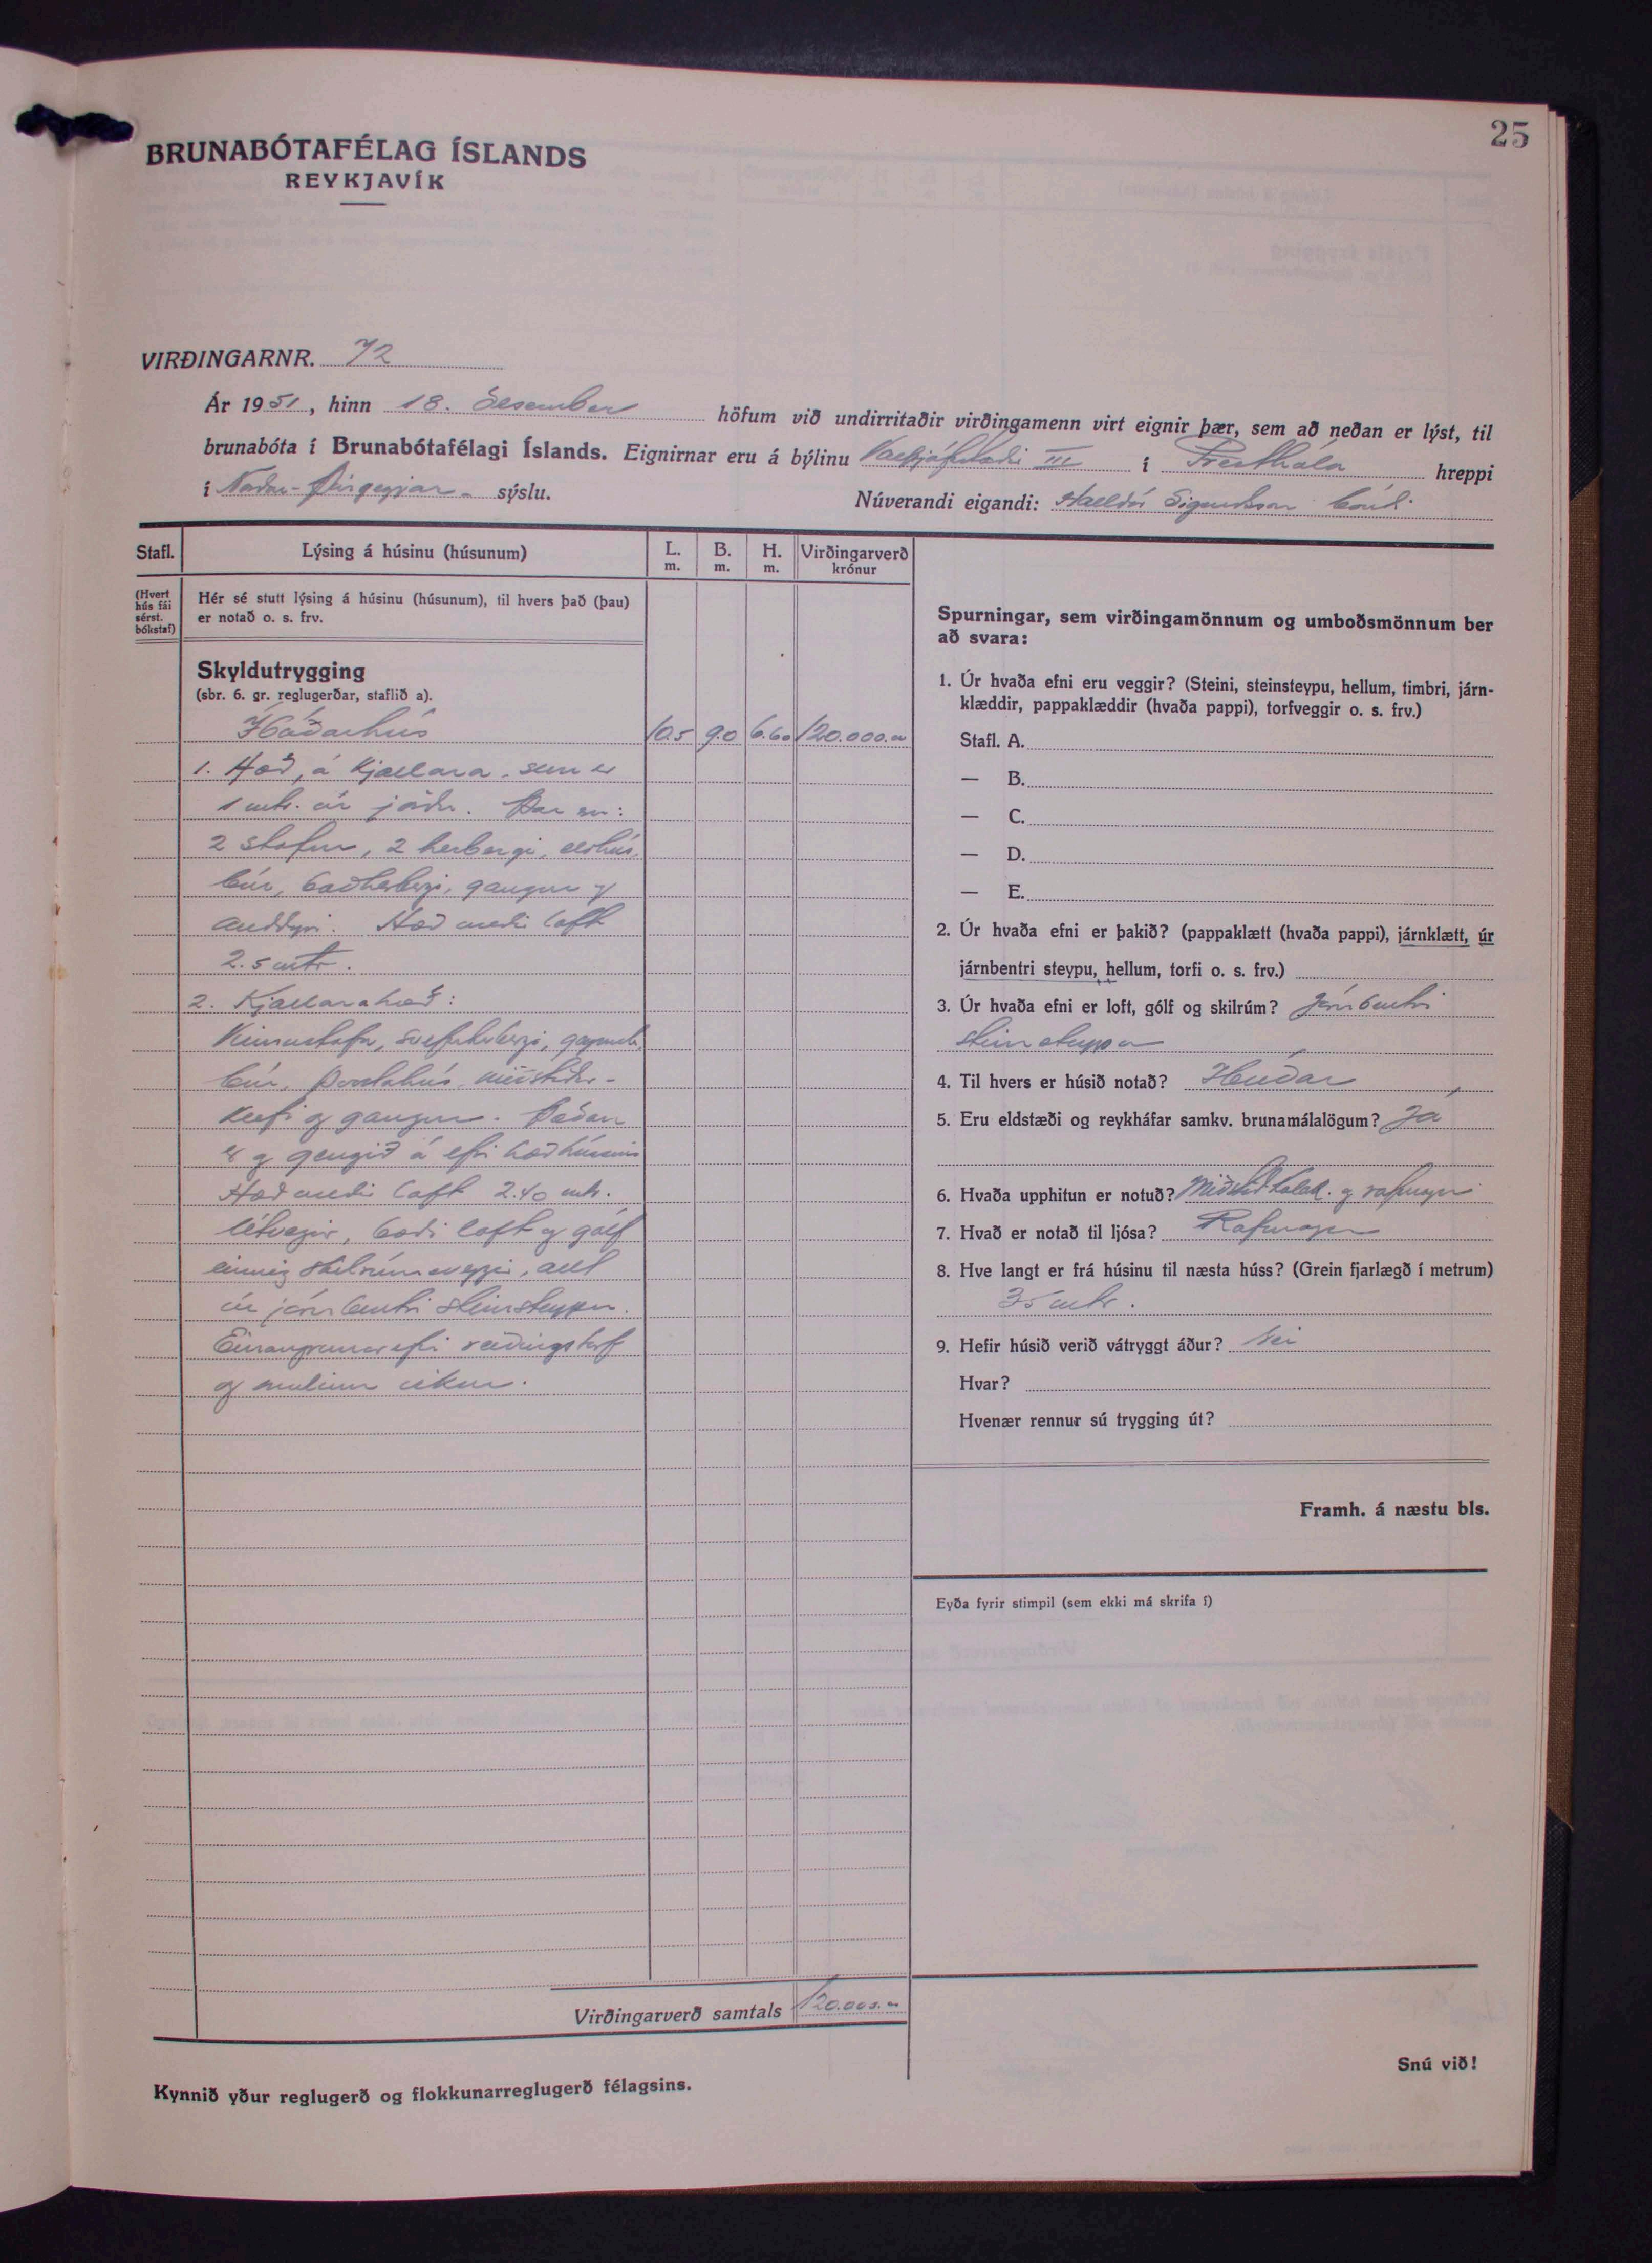 25
BRUNABÓTAFÉLAG ÍSLANDS
REYKJAVÍK
VIRÐINGARNR. 72
Ár 1951, hinn 18. Desember höfum við undirritaðir virðingamenn virt eignir þær, sem að neðan er lýst, til
brunabóta í Brunabótafélagi Íslands. Eignirnar eru á býlinu Valþjófsstaðir III í Presthóla hreppi
í Norður-Þingeyjar- sýslu. Núverandi eigandi: Halldór Sigurðsson bóndi
Stafl.
Lýsing á húsinu (húsunum)
L. m.
B. m.
H. m.
Virðingarverð krónur
(Hvert hús fái sérst. bókstaf)
Hér sé stutt lýsing á húsinu (húsunum), til hvers það (þau)
er notað o. s. frv.
Skyldutrygging
(sbr. 6. gr. reglugerðar, staflið a).
Íbúðarhús 10.5 9.0 6.60 120.000.00
1. Hæð, á kjallara, sem er
1 mtr. úr jörðu. Þar eru:
2 stofur, 2 herbergi, eldhús,
búr, baðherbergi, gangur og
anddyri. Hæð undir loft
2.5 mtr.
2. Kjallarahæð:
Vinnustofa, svefnherbergi, geymsla,
búr, þvottahús, miðstöðvar-
klefi og gangur. Þaðan
er og gengið á efri hæð hússins
Hæð undir loft 2.40 mtr.
Útveggir, bæði loft og gólf
einnig skilrúmsveggir, allt
úr járnbentri steinsteypu.
Einangrunarefni reiðingstorf
og mulinn vikur.
Virðingarverð samtals 120.000.00
Kynnið yður reglugerð og flokkunarreglugerð félagsins.
Spurningar, sem virðingamönnum og umboðsmönnum ber
að svara:
1. Úr hvaða efni eru veggir? (Steini, steinsteypu, hellum, timbri, járn-
klæddir, pappaklæddir (hvaða pappi), torfveggir o. s. frv.)
Stafl. A.
— B.
— C.
— D.
— E.
2. Úr hvaða efni er þakið? (pappaklætt (hvaða pappi), járnklætt, úr
járnbentri steypu, hellum, torfi o. s. frv.)
3. Úr hvaða efni er loft, gólf og skilrúm? Járnbentri
steinsteypu
4. Til hvers er húsið notað? Íbúðar
5. Eru eldstæði og reykháfar samkv. brunamálalögum? Já
6. Hvaða upphitun er notuð? og rafmagn
7. Hvað er notað til ljósa? Rafmagn
8. Hve langt er frá húsinu til næsta húss? (Grein fjarlægð í metrum)
35 mtr.
9. Hefir húsið verið vátryggt áður? Nei
Hvar?
Hvenær rennur sú trygging út?
Framh. á næstu bls.
Eyða fyrir stimpil (sem ekki má skrifa í)
Snú við!